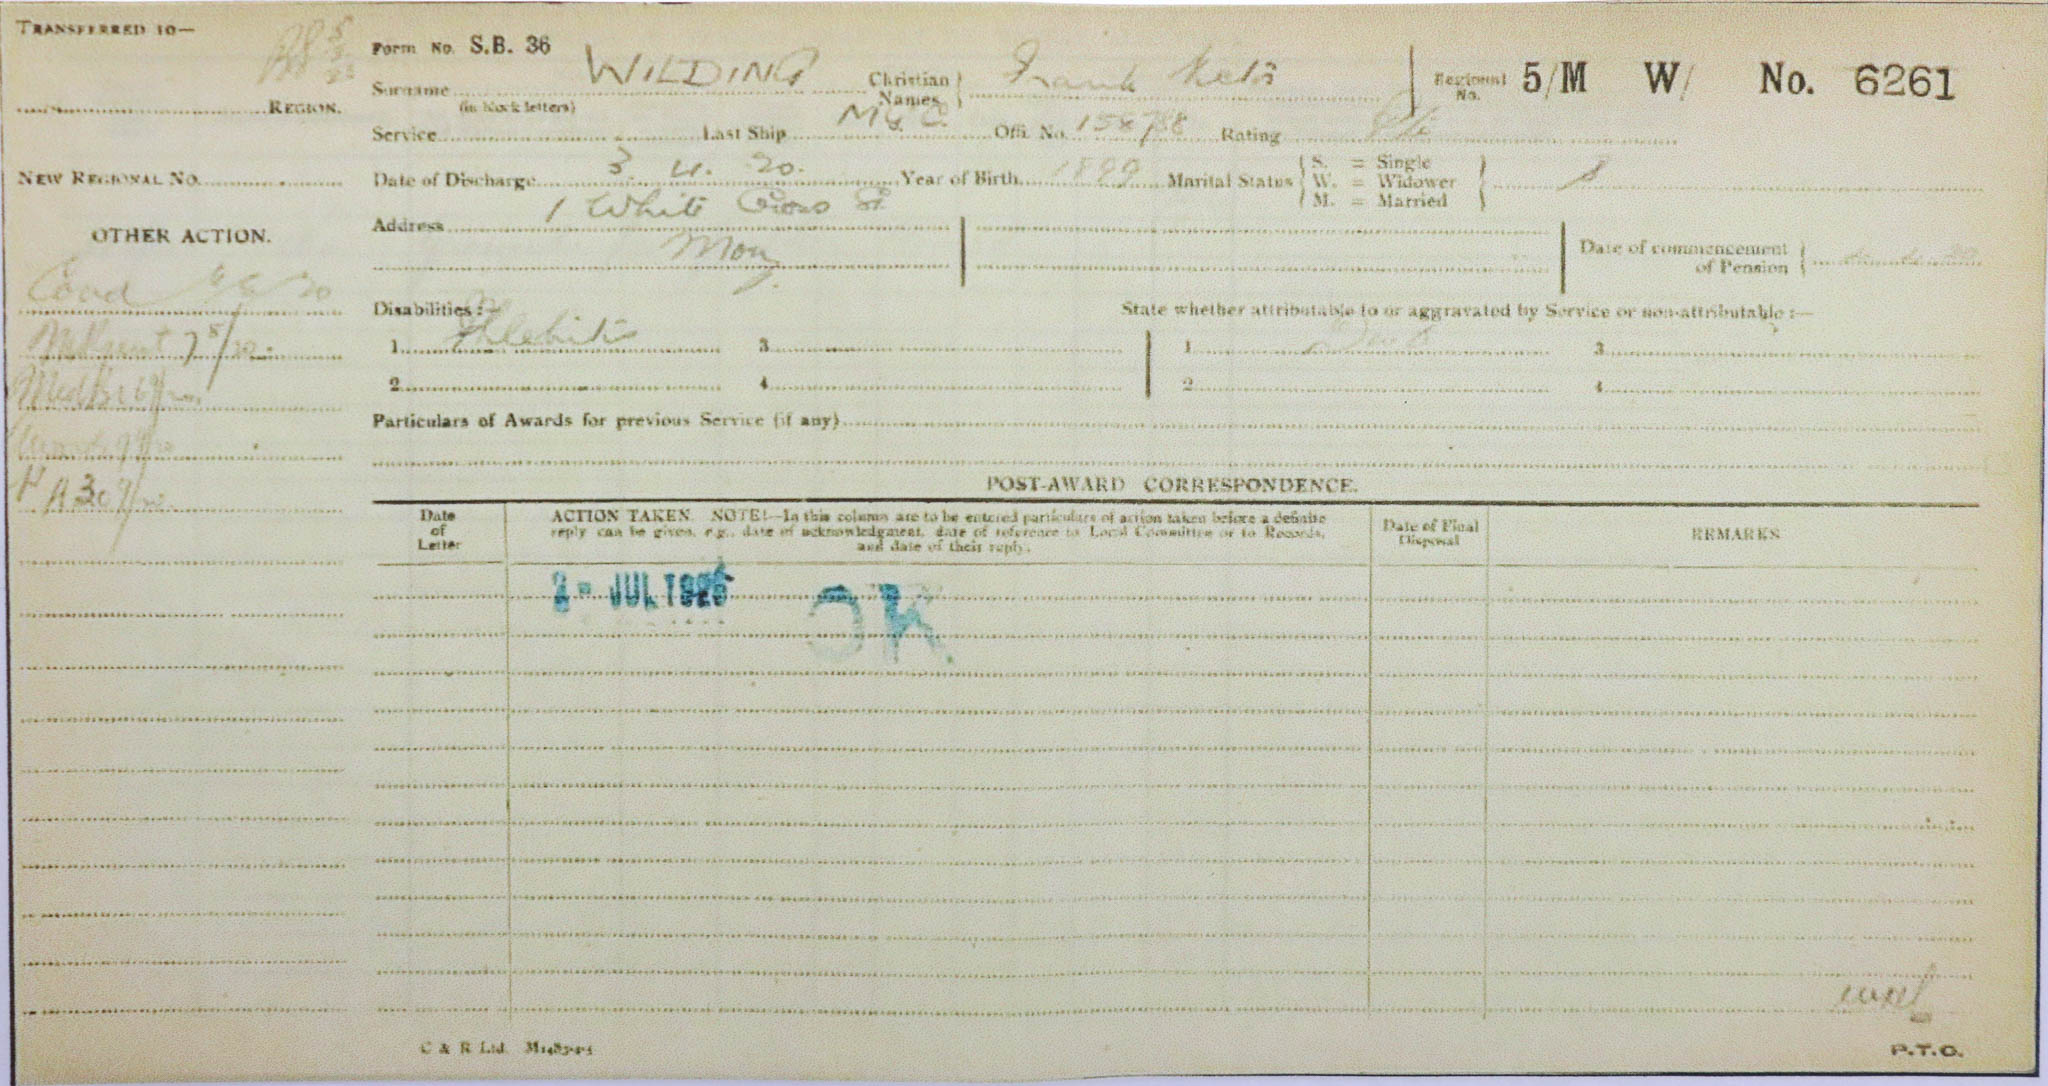 TRANSFERRED TO—
REGION.
NEW REGIONAL NO.
OTHER ACTION.
Form No. S.B. 36
Surname WILDING
(in block letters)
Christian Names Frank
Regional No. 5/M W/ No. 6261
Service Last Ship M.G.C. Offi. No. 158788 Rating Pte
Date of Discharge 3. 4. 20. Year of Birth 1899 Marital Status S. = Single W. = Widower M. = Married S
Address 1 White Cross St.
Mon.
Date of commencement of Pension
Disabilities:—
State whether attributable to or aggravated by Service or non-attributable:—
1 Phlebitis 3 1 3
2 4 2 4
Particulars of Awards for previous Service (if any)
POST-AWARD CORRESPONDENCE.
Date of Letter
ACTION TAKEN. NOTE!—In this column are to be entered particulars of action taken before a definite
reply can be given, e.g., date of acknowledgment, date of reference to Local Committee or to Records,
and date of their reply.
Date of Final Disposal
REMARKS
2 - JUL 1926
OK
C & R Ltd.
P.T.O.